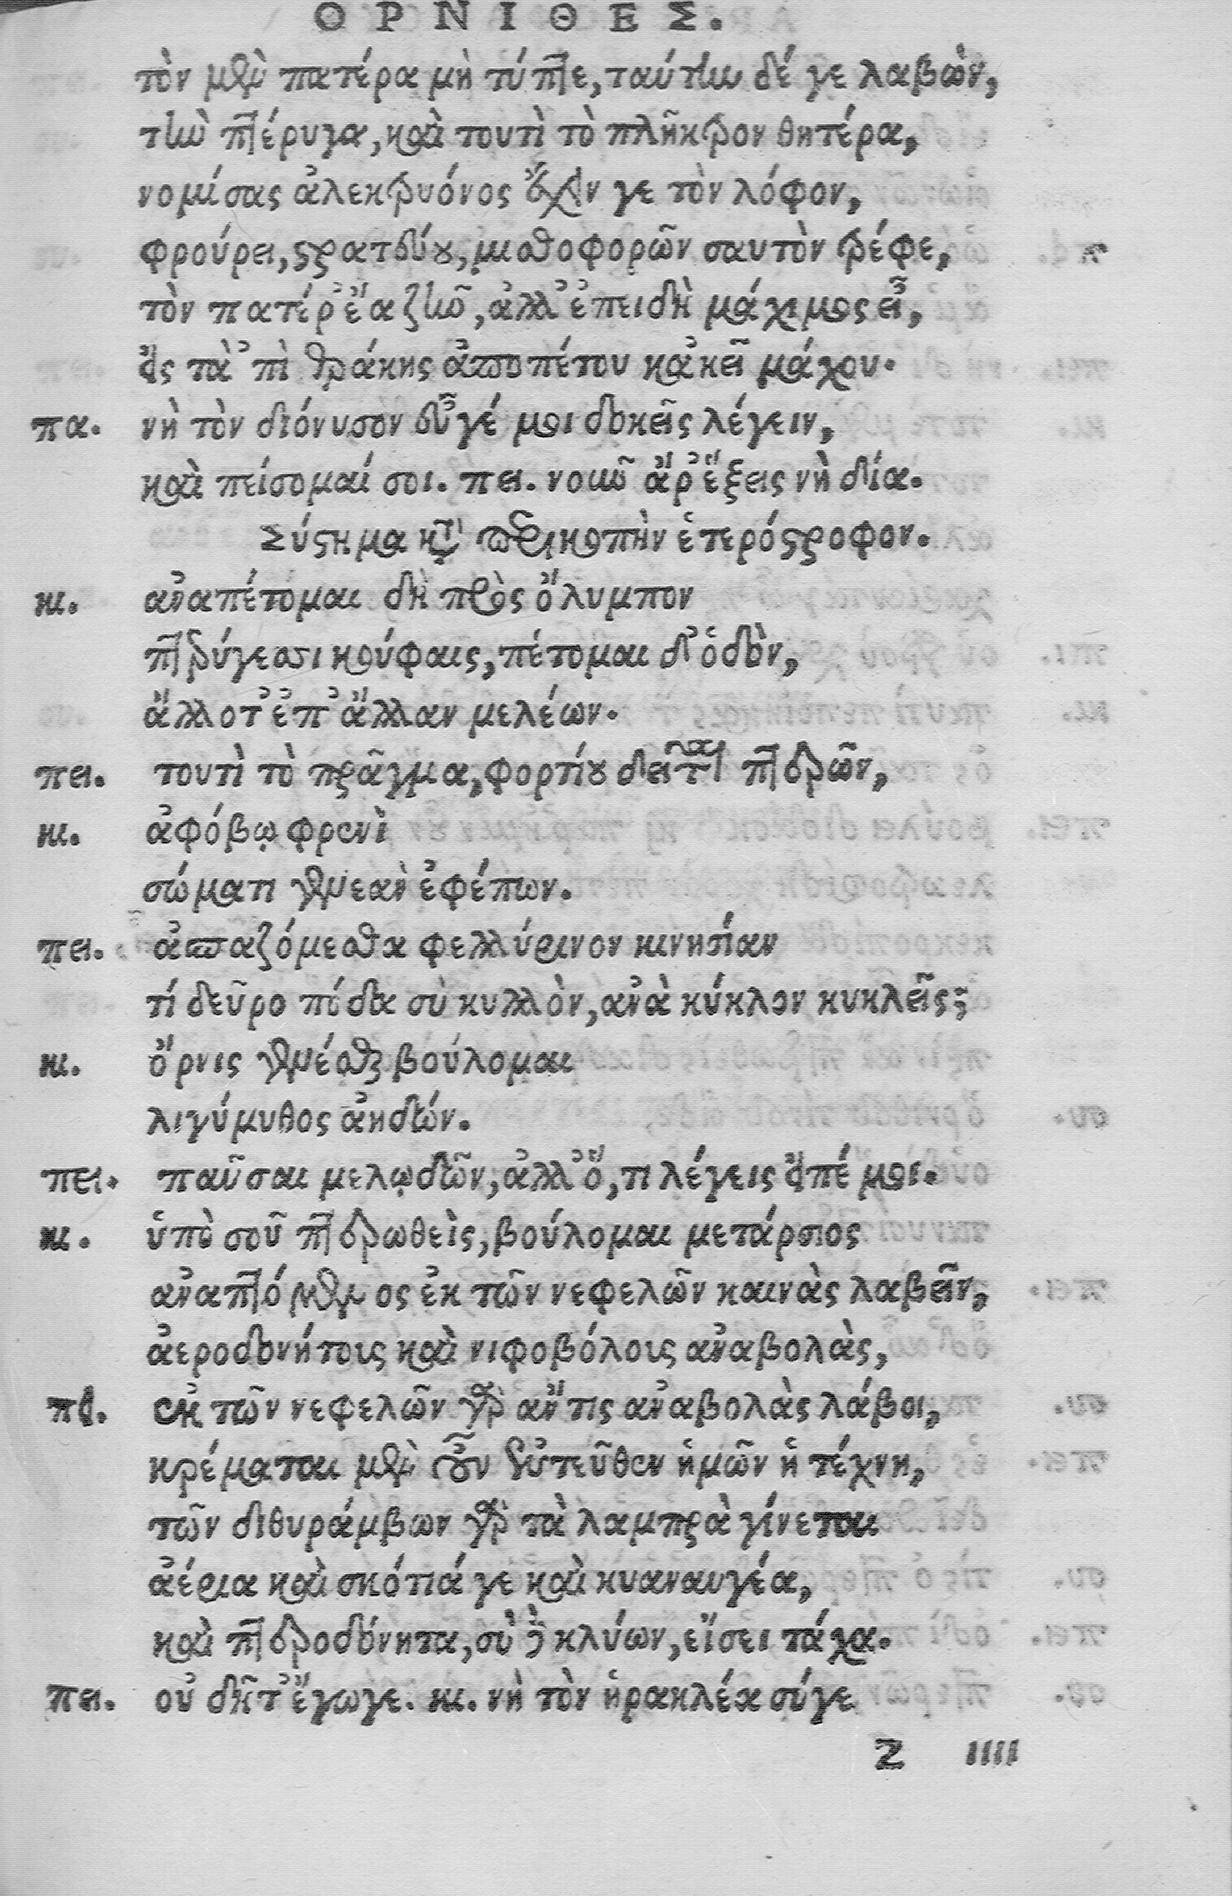 ΟΡΝΙΘΕΣ.
τὸν μὲν πατέρα μὴ τύπτε, ταύτην δέ γε λαβὼν,
τὴν πτέρυγα, καὶ τουτὶ τὸ πλῆκτρον θητέρα,
νομίσας ἀλεκτρυόνος ἔχειν γε τὸν λόφον,
φρούρει, στρατεύου, μισθοφορῶν σαυτὸν τρέφε,
τὸν πατέρ᾽ ἔα ζῆν, ἀλλ᾽ ἐπειδὴ μάχιμος εἶ,
εἰς τἀπὶ θράκης ἀποπέτου κἀκεῖ μάχου.
πα. νὴ τὸν διόνυσον εὖγέ μοι δοκεῖς λέγειν,
καὶ πείσομαί σοι. πει. νοῦν ἄρ᾽ ἕξεις νὴ δία.
Σύστημα κατὰ περικοπὴν ἑτερόστροφον.
κι. ἀναπέτομαι δὴ πρὸς ὄλυμπον
πτερύγεσσι κούφαις, πέτομαι δ᾽ ὁδὸν,
ἄλλοτ᾽ ἐπ᾽ ἄλλαν μελέων.
πει. τουτὶ τὸ πρᾶγμα, φορτίου δεῖται πτερῶν,
κι. ἀφόβῳ φρενὶ
σώματι γενεὰν ἐφέπων.
πει. ἀσπαζόμεσθα φελλύρινον κινησίαν
τί δεῦρο πόδα σὺ κυλλὸν, ἀνὰ κύκλον κυκλεῖς;
κι. ὄρνις γενέσθαι βούλομαι
λιγύμυθος ἀηδών.
πει. παῦσαι μελῳδῶν, ἀλλ᾽ ὅ, τι λέγεις εἰπέ μοι.
κι. ὑπὸ σοῦ πτερωθεὶς, βούλομαι μετάρσιος
ἀναπτόμενος ἐκ τῶν νεφελῶν καινὰς λαβεῖν,
ἀεροδονήτοις καὶ νιφοβόλοις ἀναβολὰς,
πει. ἐκ τῶν νεφελῶν γὰρ ἄν τις ἀναβολὰς λάβοι,
κρέμαται μὲν οὖν ἐντεῦθεν ἡμῶν ἡ τέχνη,
τῶν διθυράμβων γὰρ τὰ λαμπρὰ γίνεται
ἀέρια καὶ σκότιά γε καὶ κυαναυγέα,
καὶ πτεροδόνητα, σὺ δὲ κλύων, εἴσει τάχα.
πει. οὐ δῆτ᾽ ἔγωγε. κι. νὴ τὸν ἡρακλέα σύγε
Z IIII